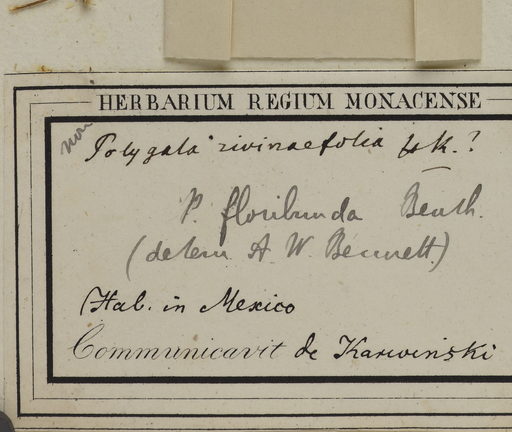 HERBARIUM REGIUM MONACENSE
non Polygala rivinaefolia HK.?
P. floribunda Benth.
(determ A. W. Bennett)
Hab. in Mexico
Communicavit de Karwinski